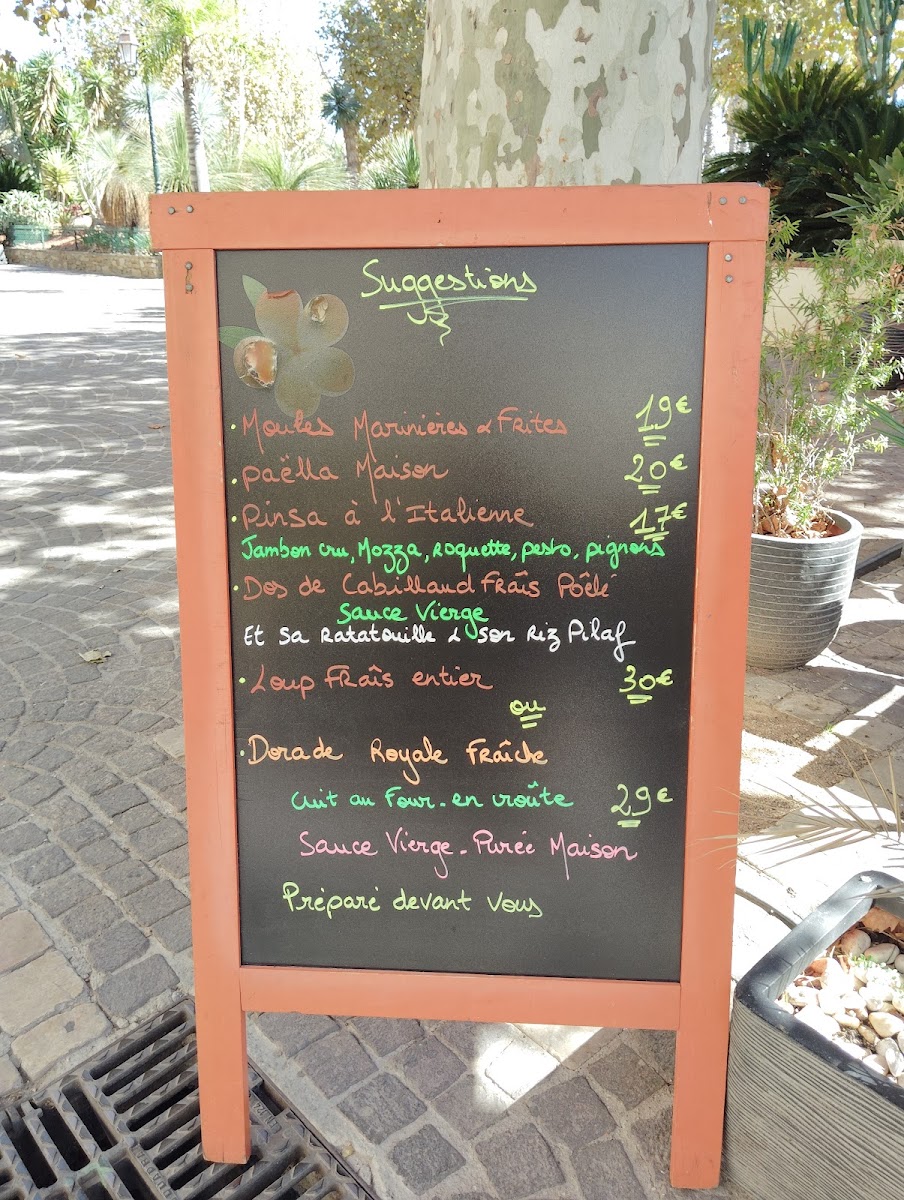 Suggestions
• Moules Marinières & Frites 19€
• Paëlla Maison 20€
• Pinsa à l'Italienne 17€
Jambon cru, Mozza, Roquette, pesto, pignons
• Dos de Cabillaud Fraîs Pôêlé
Sauce Vierge
Et sa Ratatouille & son Riz Pilaf
• Loup Fraîs entier 30€
ou
• Dorade Royale Fraîche
Cuit au Four - en croûte 29€
Sauce Vierge - Purée Maison
Préparé devant vous